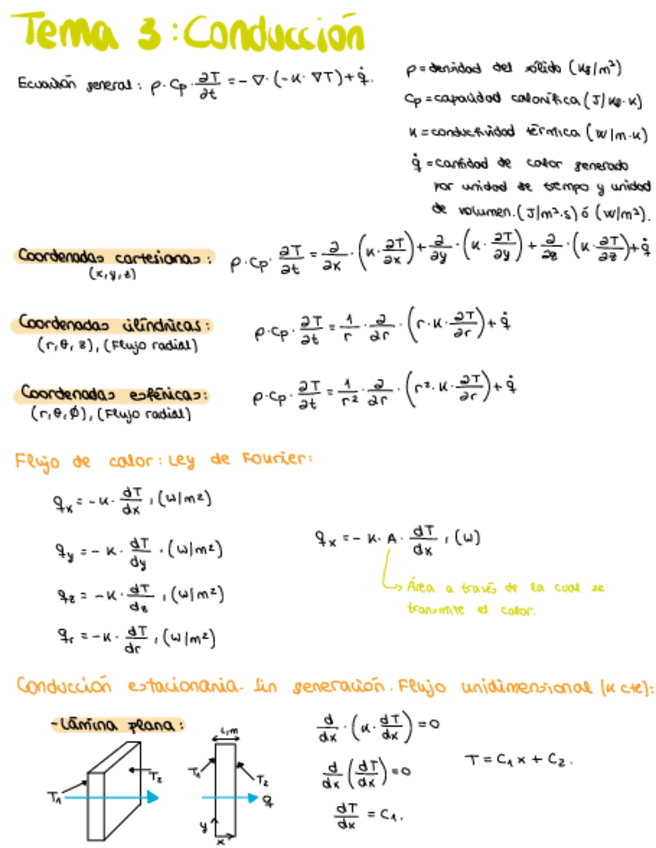 Tema 3: Conducción
Ecuación general: ρ·Cp·∂T/∂t = -∇·(-K·∇T)+q̇.
ρ = densidad del sólido (Kg/m³)
Cp = capacidad calorífica (J/Kg·K)
K = conductividad térmica (W/m·K)
q̇ = cantidad de calor generado
por unidad de tiempo y unidad
de volumen. (J/m³·s) ó (W/m³).
Coordenadas cartesianas: ρ·Cp·∂T/∂t = ∂/∂x·(K·∂T/∂x)+∂/∂y·(K·∂T/∂y)+∂/∂z·(K·∂T/∂z)+q̇
(x,y,z)
Coordenadas cilíndricas: ρ·Cp·∂T/∂t = 1/r·∂/∂r·(r·K·∂T/∂r)+q̇
(r,θ,z), (Flujo radial)
Coordenadas esféricas: ρ·Cp·∂T/∂t = 1/r²·∂/∂r·(r²·K·∂T/∂r)+q̇
(r,θ,ϕ), (Flujo radial)
Flujo de calor: Ley de Fourier:
qx = -K·dT/dx, (W/m²)
qy = -K·dT/dy, (W/m²)
qz = -K·dT/dz, (W/m²)
qr = -K·dT/dr, (W/m²)
qx = -K·A·dT/dx, (W)
Área a través de la cual se
transmite el calor.
Conducción estacionaria. Sin generación. Flujo unidimensional (K cte):
-Lámina plana:
L,m
T₁
T₂
T₁
T₂
q
y
x
d/dx·(K·dT/dx)=0
d/dx(dT/dx)=0
dT/dx = C₁.
T = C₁x + C₂.